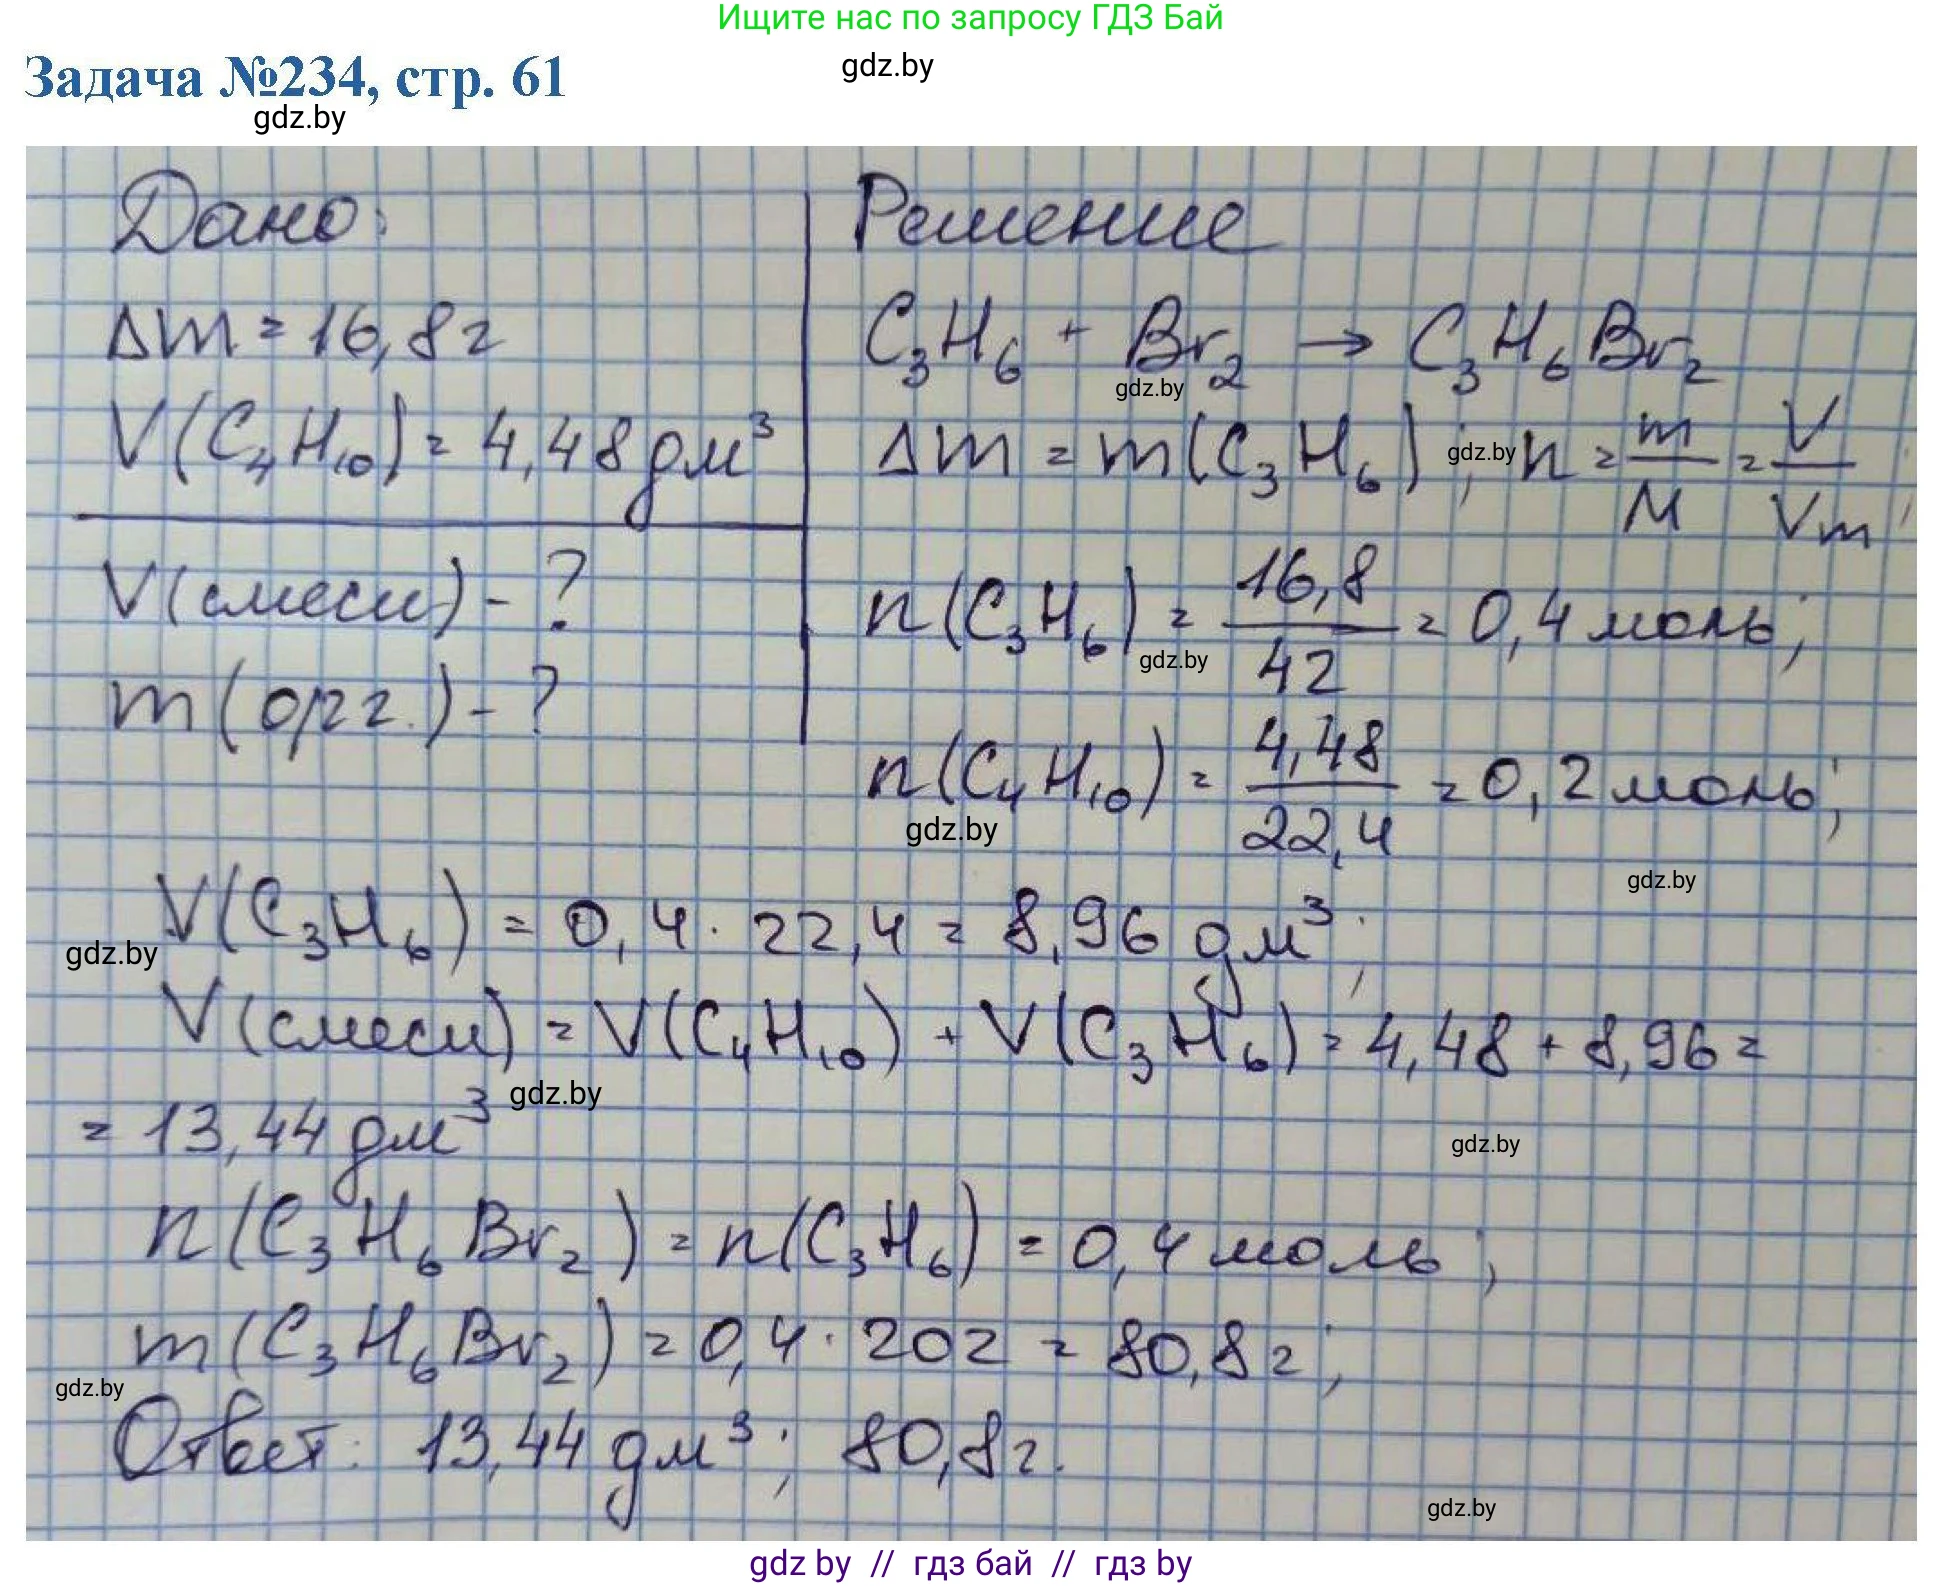 Ищите нас по запросу ГДЗ Бай
gdz.by
Задача №234, стр. 61
gdz.by
Дано:
Δm = 16,8 г
V(C₄H₁₀) = 4,48 дм³
V(смеси) - ?
m(орг.) - ?
Решение
C₃H₆ + Br₂ → C₃H₆Br₂
gdz.by
Δm = m(C₃H₆); n = m/M = V/Vm;
gdz.by
n(C₃H₆) = 16,8/42 = 0,4 моль;
gdz.by
n(C₄H₁₀) = 4,48/22,4 = 0,2 моль;
gdz.by
gdz.by
V(C₃H₆) = 0,4 · 22,4 = 8,96 дм³;
gdz.by
V(смеси) = V(C₄H₁₀) + V(C₃H₆) = 4,48 + 8,96 =
gdz.by
= 13,44 дм³
gdz.by
n(C₃H₆Br₂) = n(C₃H₆) = 0,4 моль;
m(C₃H₆Br₂) = 0,4 · 202 = 80,8 г;
gdz.by
Ответ: 13,44 дм³; 80,8 г.
gdz.by
gdz by // гдз бай // гдз by